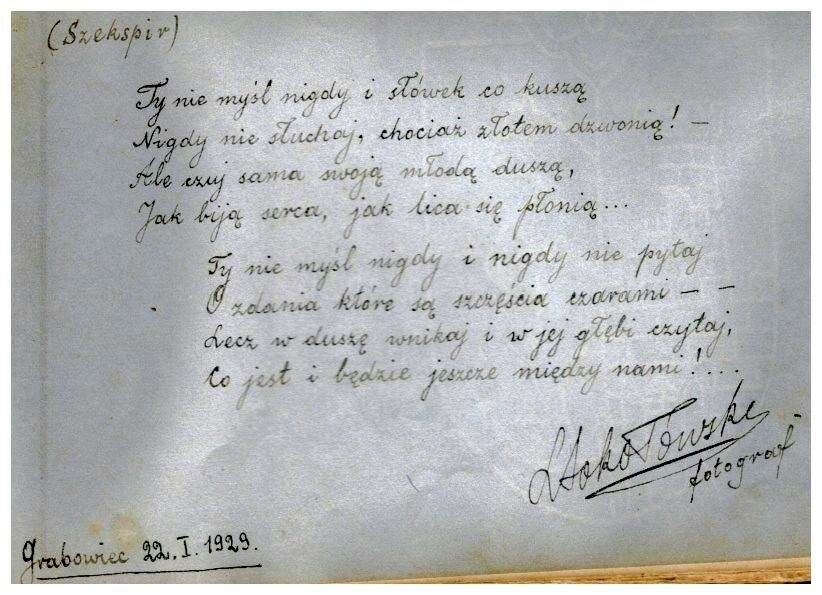 (Szekspir)
Ty nie myśl nigdy i słówek co kuszą
Nigdy nie słuchaj, chociaż złotem dzwonią! –
Ale czuj sama swoją młodą duszą,
Jak biją serca, jak lica się płonią...
Ty nie myśl nigdy i nigdy nie pytaj
O zdania które są szczęścia czarami – –
Lecz w duszę wnikaj i w jej głębi czytaj,
Co jest i będzie jeszcze między nami!....
fotograf
Grabowiec 22.I.1929.